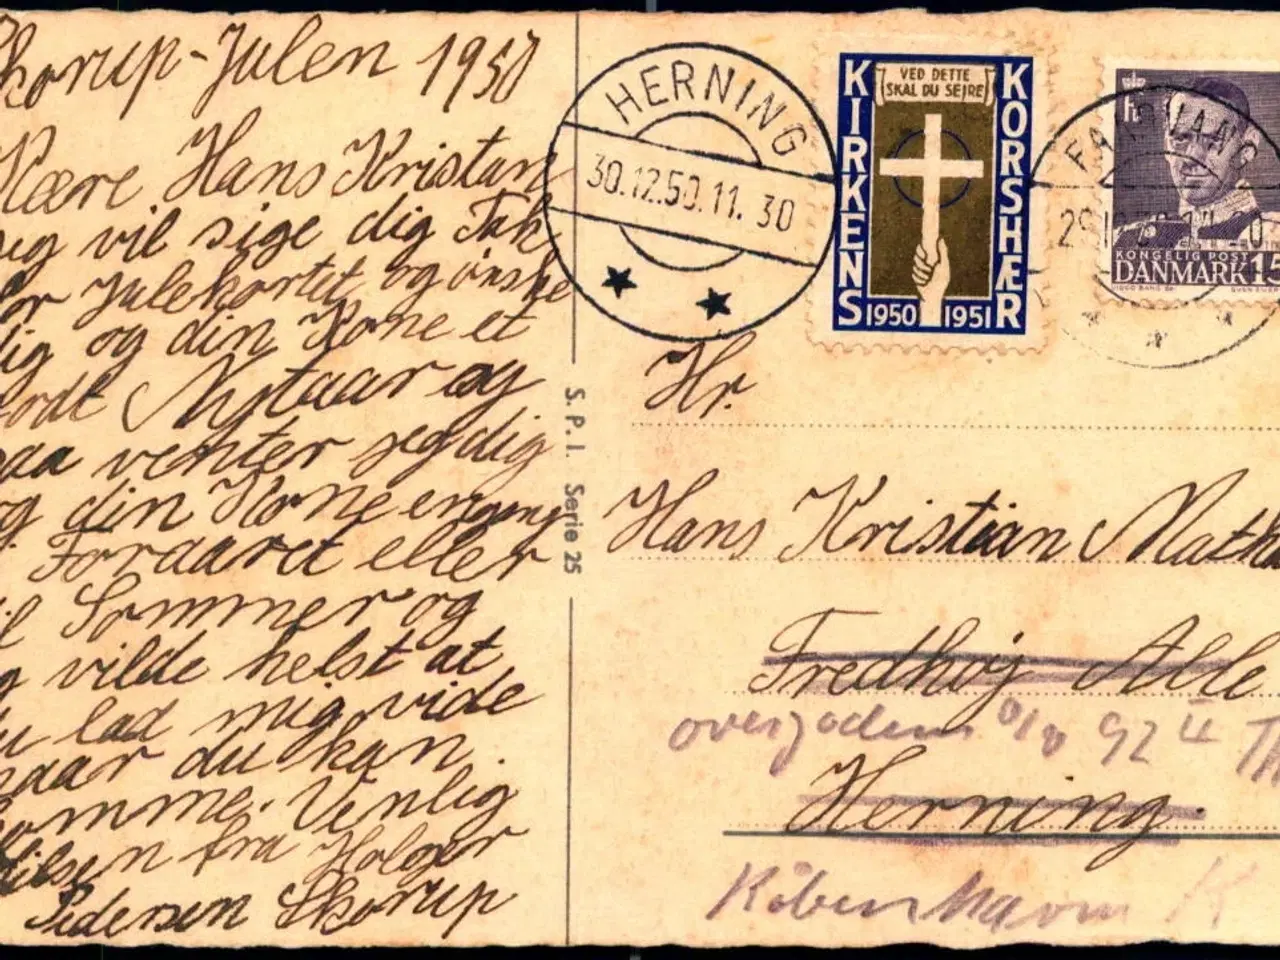 Skorup-Julen 1950
Kære Hans Kristian
jeg vil sige dig Tak
for Julekortet og ønske
dig og din Kone et
godt Nytaar og
saa venter jeg dig
og din Kone engang
i Foraaret eller
til Sommer og
jeg vilde helst at
du lad mig vide
naar du kan
komme. Venlig
Hilsen fra Holger
Pedersen Skorup
S.P.I. Serie 25
HERNING
30.12.50.11. 30
KIRKENS KORSHÆR
VED DETTE
SKAL DU SEJRE
1950 1951
KONGELIG POST
DANMARK 15
Hr.
Hans Kristian Math
Fredhøj Alle
92 II
Herning.
København K